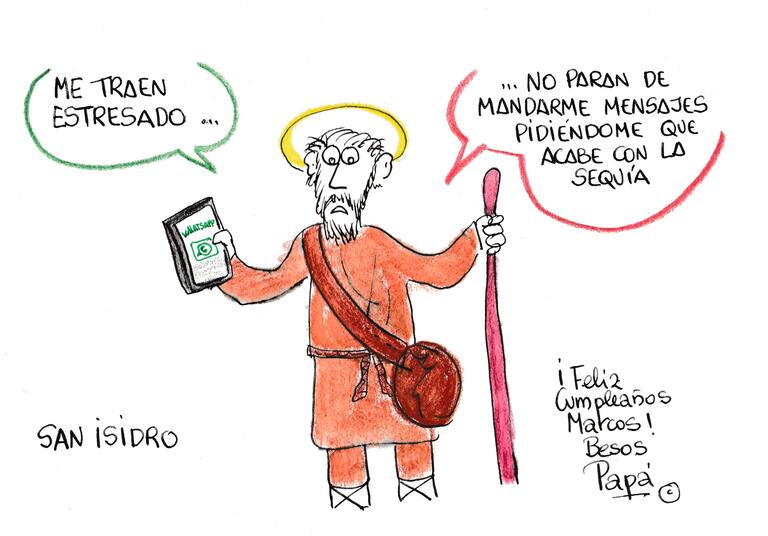 ME TRAEN
ESTRESADO ...
... NO PARAN DE
MANDARME MENSAJES
PIDIÉNDOME QUE
ACABE CON LA
SEQUÍA
WHATSAPP
SAN ISIDRO
¡Feliz
Cumpleaños
Marcos!
Besos
Papá
©